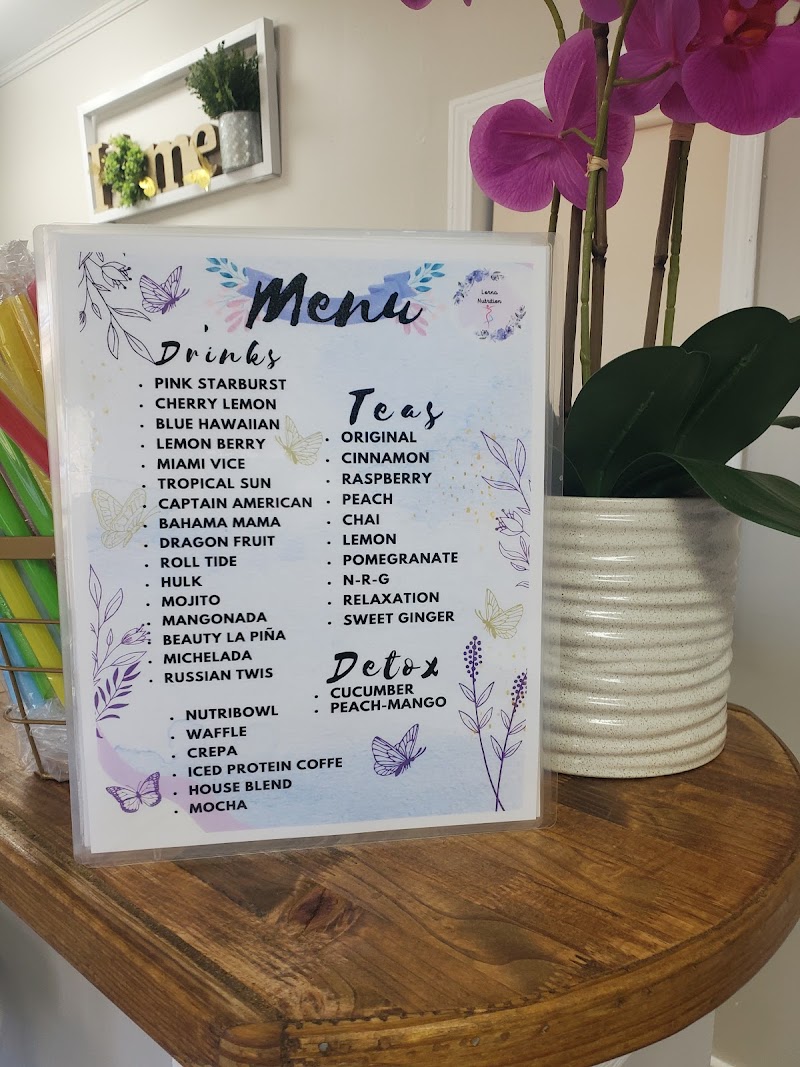 home
Menu
Lorna
Nutrition
Drinks
• PINK STARBURST
• CHERRY LEMON
• BLUE HAWAIIAN
• LEMON BERRY
• MIAMI VICE
• TROPICAL SUN
• CAPTAIN AMERICAN
• BAHAMA MAMA
• DRAGON FRUIT
• ROLL TIDE
• HULK
• MOJITO
• MANGONADA
• BEAUTY LA PIÑA
• MICHELADA
• RUSSIAN TWIS
Teas
• ORIGINAL
• CINNAMON
• RASPBERRY
• PEACH
• CHAI
• LEMON
• POMEGRANATE
• N-R-G
• RELAXATION
• SWEET GINGER
Detox
• CUCUMBER
• PEACH-MANGO
• NUTRIBOWL
• WAFFLE
• CREPA
• ICED PROTEIN COFFE
• HOUSE BLEND
• MOCHA